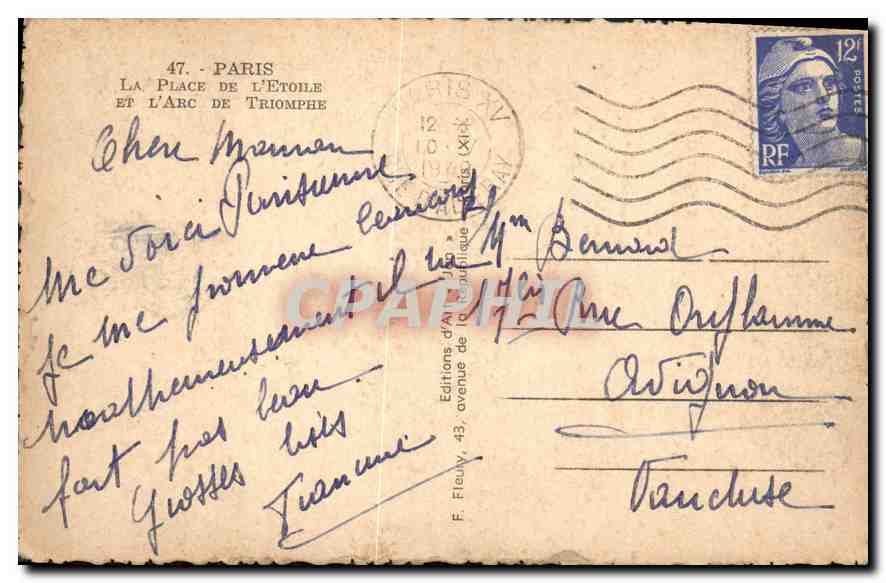 47. - PARIS
LA PLACE DE L'ETOILE
ET L'ARC DE TRIOMPHE
Chere Maman
Me voici Parisienne
Je me promene beaucoup
Malheureusement il ne
fait pas beau.
Grosses bises
Francine
Editions d'Art
F. Fleury, 43, avenue de la République Paris (XIe)
PARIS XV
12
10
12F
POSTES
RF
Mm Bernard
17 Rue Oriflamme
Avignon
Vaucluse
CPAPHIL